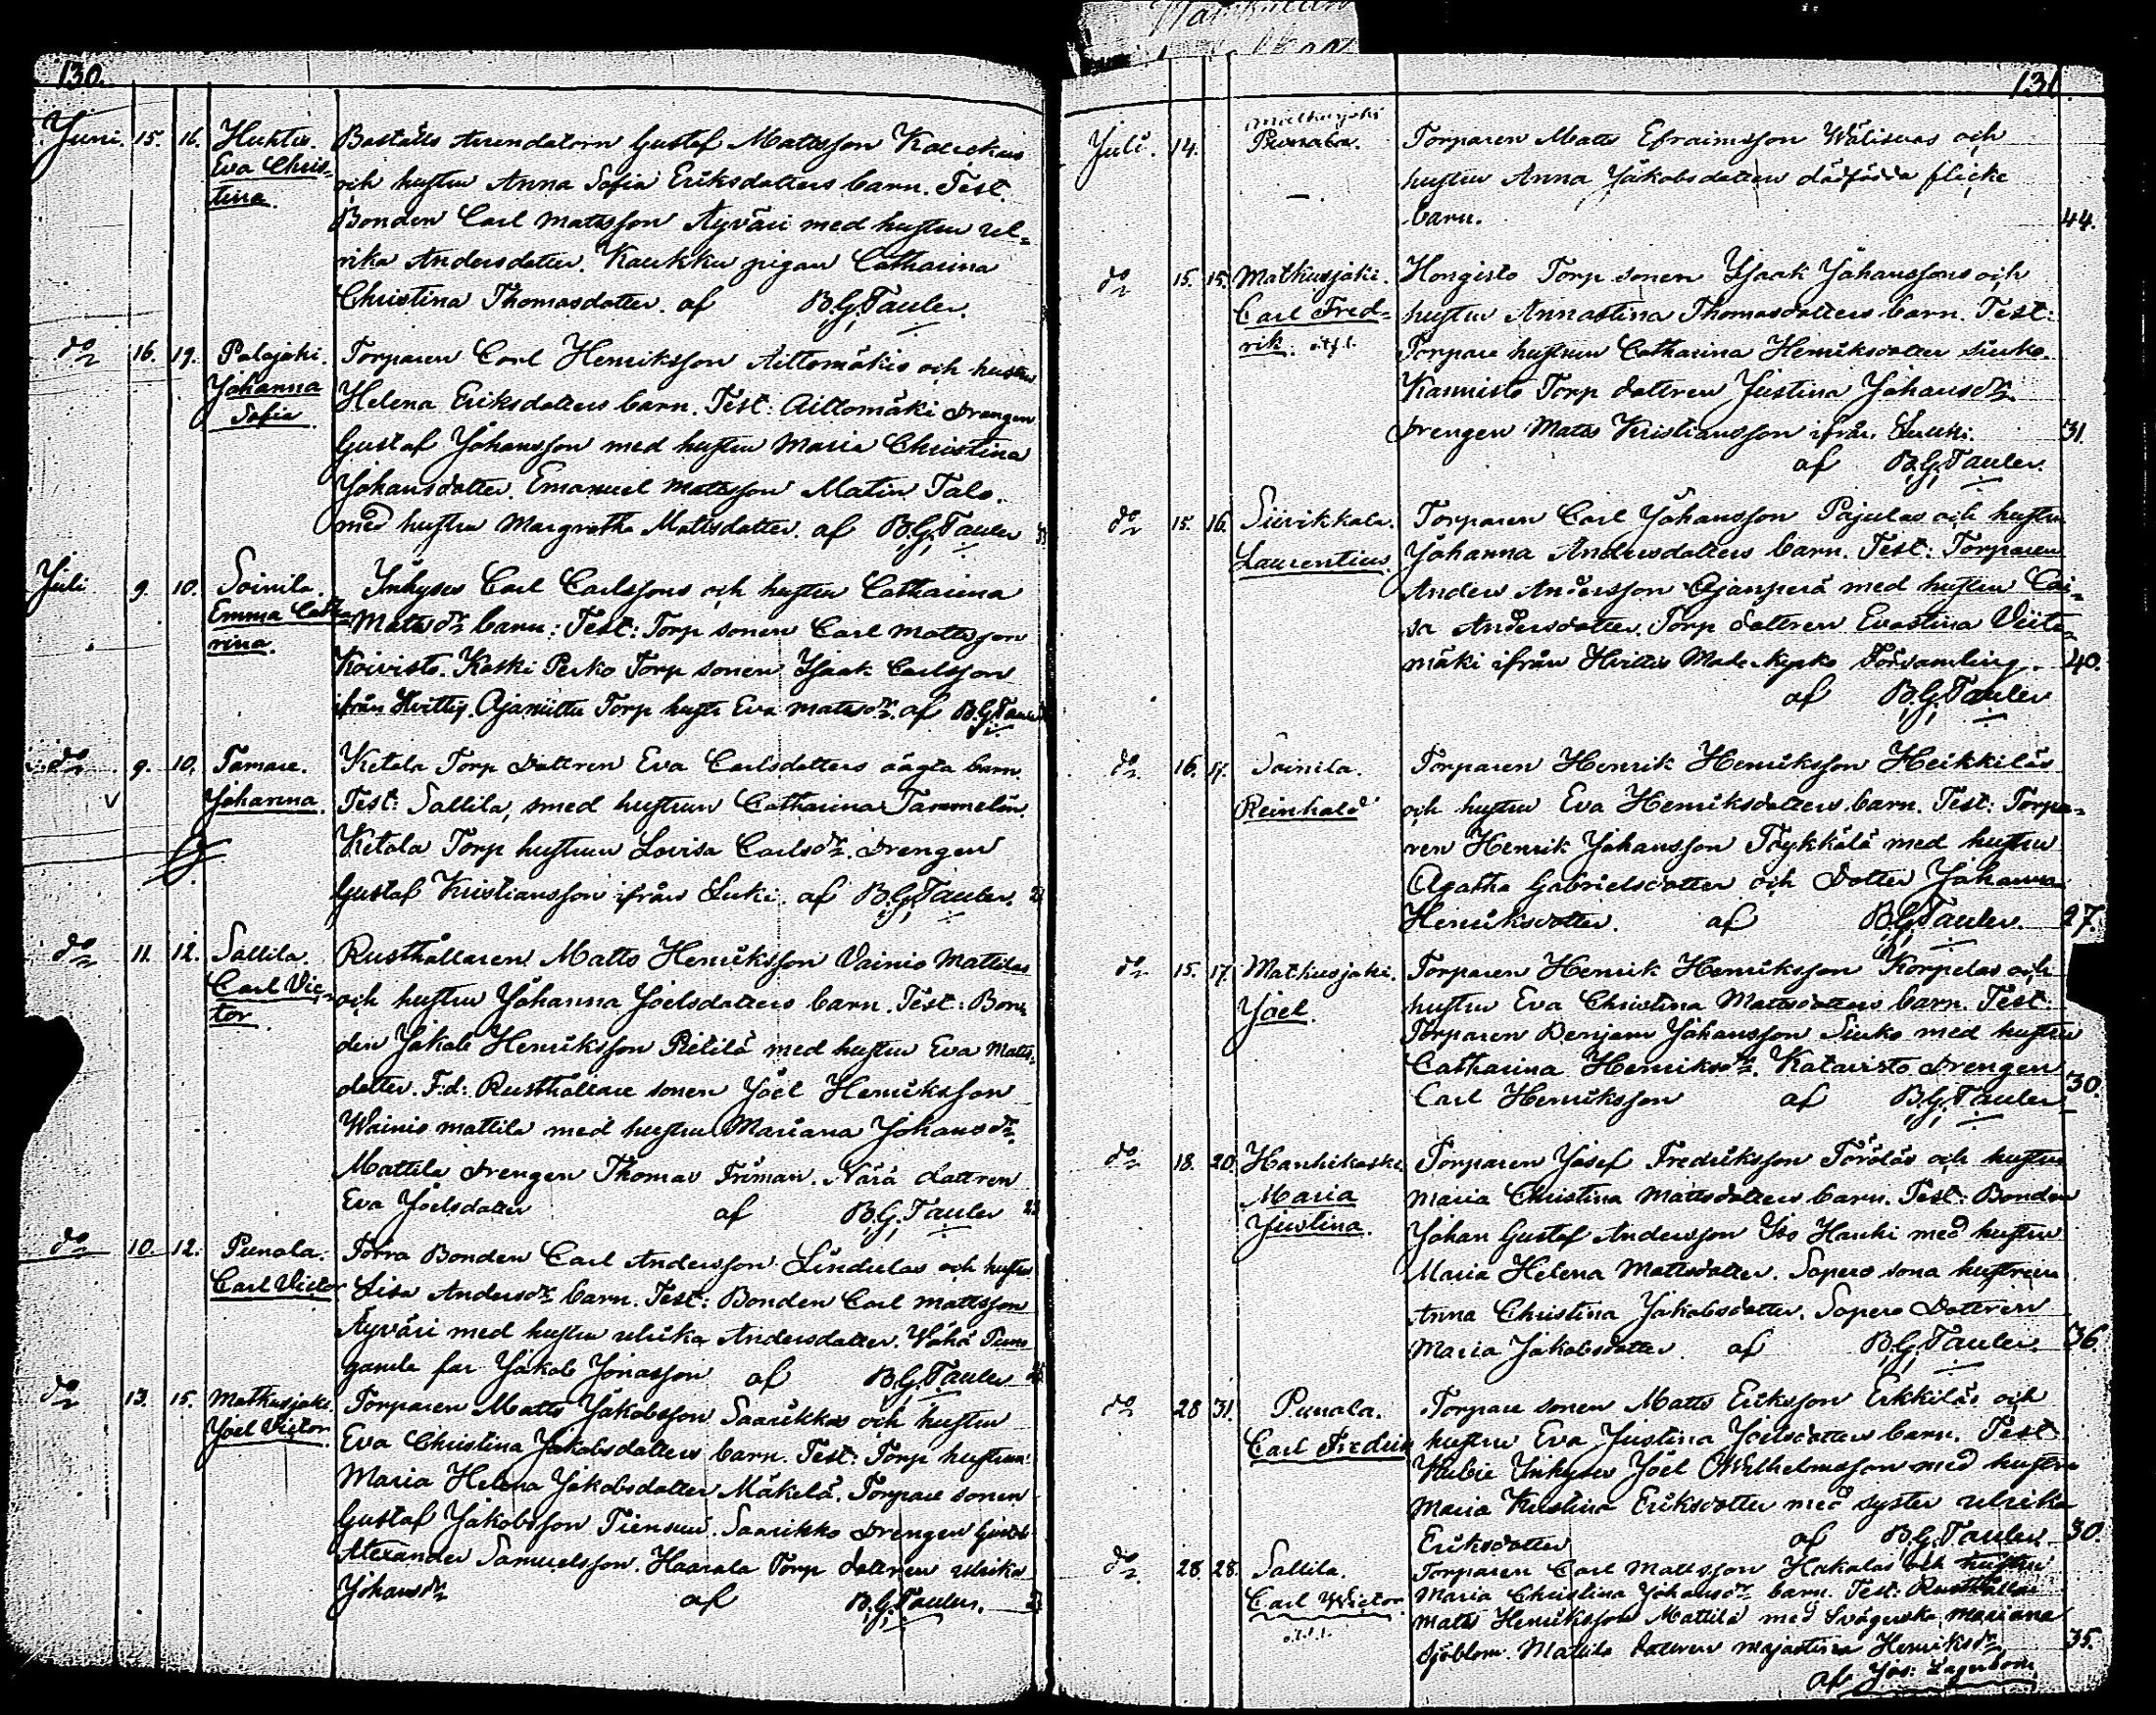 130.
Juni. 15. 16. Huhtis. Boställs Arrendatorn Gustaf Mattsson
Eva Chris-
tina.
och hustru Anna Sofia Eriksdotters barn. Test.
Bonden Carl Mattsson Äyväri med hustru Ul-
rika Andersdotter. Kaukku pigan Catharina
Christina Thomasdotter. af B.G. Tauler.
do 16. 19. Palojoki. Torparen Carl Henriksson Aittomäkis och hustru
Johanna
Sofia.
Helena Eriksdotters barn. Test: Aittomäki drengen
Gustaf Johansson med hustru Maria Christina
Johansdotter. Emanuel Mattsson Matin Talo.
med hustru Margretha Mattsdotter. af B.G. Tauler
Juli 9. 10. Soinila. Inhyses Carl Carlssons och hustru Catharina
Emma Catha-
rina.
Matts dr barn: Test: Torp sonen Carl Mattsson
Koivisto. Koski Perko Torp sonen Isaak Carlsson
ifrån Hvittis. Torp hustr Eva Matts dr. af B.G. Tauler
do 9. 10. Tamare. Ketola Torp Dottren Eva Carlsdotters oägta barn.
Johanna.
Test: Sallila, smed hustrun Catharina Tammelin.
Ketola Torp hustrun Lovisa Carls dr. Drengen
Gustaf Kristiansson ifrån Suki. af B.G. Tauler.
do 11. 12. Sallila. Rusthållaren Matts Henriksson Vainio Mattilas
Carl Vic-
tor.
och hustru Johanna Joelsdotters barn. Test: Bon-
den Jakob Henriksson Pietilä med hustru Eva Matts-
dotter. F.d: Rusthållare sonen Joel Henriksson
Wainio Mattila med hustru Mariana Johans dr.
Mattila Drengen Thomas Friman. Närä dottren
Eva Joelsdotter af B.G. Tauler
do 10. 12. Punola. Förra Bonden Carl Andersson Lindulas och hustru
Carl Victor
Lisa Anders dr barn. Test: Bonden Carl Mattsson
Äyväri med hustru Ulrika Andersdotter. Wähä
gamle far Jakob Jonasson af B.G. Tauler
do 13. 15. Matkusjoki. Torparen Matts Jakobsson Saarikkos och hustru
Joel Victor.
Eva Christina Jakobsdotters barn. Test: Torp hustrun
Maria Helena Jakobsdotter Mäkelä. Torpare sonen
Gustaf Jakobsson Tiensuu. Saarikko drengen Gustaf
Alexander Samuelsson. Haarala Torp dottren Ulrika
Johans dr af B.G. Tauler.
131.
Juli. 14. Punala. Torparen Matts Efraimsson och
hustru Anna Jakobsdotters dödfödda flicke
barn. 44.
do 15. 15. Matkusjoki. Hongisto Torp sonen Isaak Johanssons och
Carl Fred-
rik.
hustru Annastina Thomasdotters barn. Test:
Torpare hustrun Catharina Henriksdotter Sinko.
Kannisto Torp dottren Justina Johans dr.
Drengen Matts Kristiansson ifrån 31.
af B.G. Tauler.
do 15. 16. Siivikkala. Torparen Carl Johansson Pajulas och hustru
Laurentius.
Johanna Andersdotters barn. Test: Torparen
Anders Andersson Ojanperä med hustru Cai-
sa Andersdotter. Torp dottren Evastina Viita-
mäki ifrån Hvittis Moderkyrko Församling. 40.
af B.G. Tauler
do 16. 17. Soinila. Torparen Henrik Henriksson Heikkiläs
Reinhold
och hustru Eva Henriksdotters barn. Test: Torpa-
ren Henrik Johansson Töykkälä med hustru
Agatha Gabrielsdotter och Dotter Johanna
Henriksdotter. af B.G. Tauler. 27.
do 15. 17. Matkusjoki. Torparen Henrik Henriksson Korpelas och
Joel.
hustru Eva Christina Mattsdotters barn. Test:
Torparen Benjam Johansson Sinko med hustru
Catharina Henriks dr. Katavisto drengen
Carl Henriksson af B.G. Tauler 30.
do 18. 20. Hanhikoski. Torparen Josef Fredriksson Töröläs och hustru
Maria
Justina.
Maria Christina Mattsdotters barn. Test: Bonden
Johan Gustaf Andersson Iso Hanhi med hustru
Maria Helena Mattsdotter. Sapero sona hustrun
Anna Christina Jakobsdotter. Sapero Dottren
Maria Jakobsdotter af B.G. Tauler. 36.
do 28 31. Punala. Torpare sonen Matts Eriksson Erkkiläs och
Carl Fredrik
hustru Eva Justina Joelsdotters barn. Test
Inhyses Joel Wilhelmsson med hustru
Maria Kristina Eriksdotter med syster Ulrika
Eriksdotter af B.G. Tauler. 30.
do 28 28. Sallila. Torparen Carl Mattsson Hakalas och hustru
Carl Wictor.
Maria Christina Johans dr barn. Test: Rusthållar
Matts Henriksson Mattila med Svägerska Mariana
Sjöblom. Mattila dottren Majastina Henriks dr. 35.
af Jos: Lagerbom